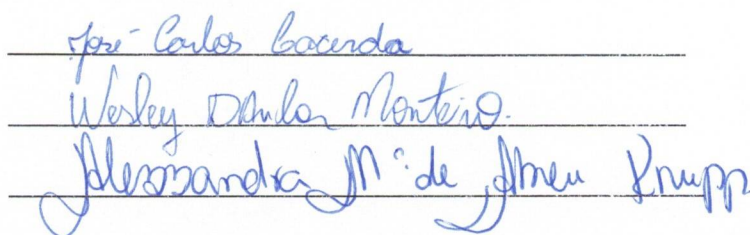 José Carlos Lacerda
Wesley Danilon Monteiro.
Alessandra Mª de Abreu Knupp